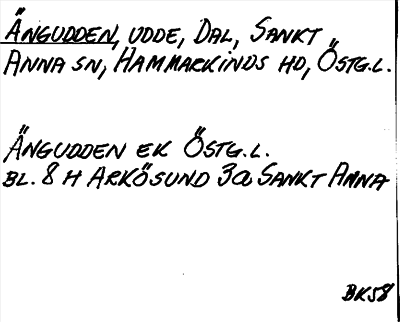 ÄNGUDDEN, UDDE, DAL, SANKT
ANNA SN, HAMMARKINDS HD, ÖSTG.L.
ÄNGUDDEN EK ÖSTG.L.
BL. 8 H ARKÖSUND 3a SANKT ANNA
BK58